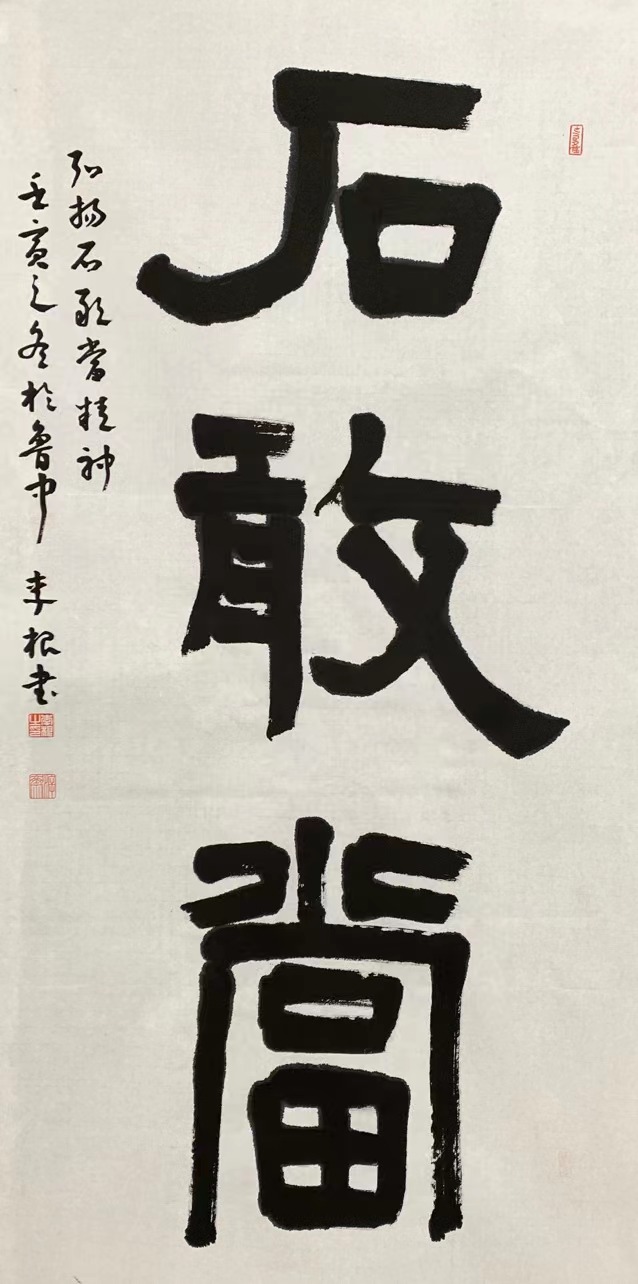 石敢當
弘扬石敢當精神
壬寅之冬於鲁中 李根书